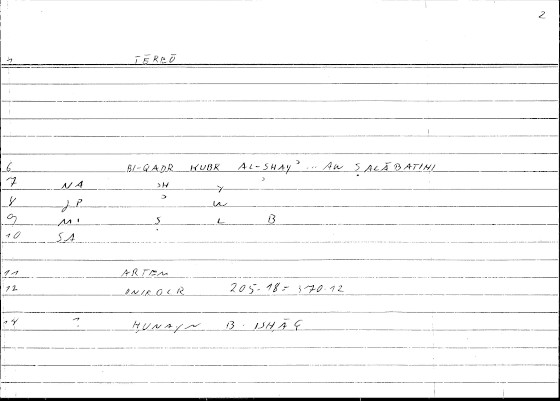 2
6 BI-QADR KUBR AL-SHAYʾ ... AW ṢALĀBATIHI
7 NA SH Y ʾ
8 JP ʾ W
9 MI Ṣ L B
10 SA
11 ARTEM
12 ONIROCR 205.18 = 370.12
14 ? ḤUNAYN B. ISḤĀQ